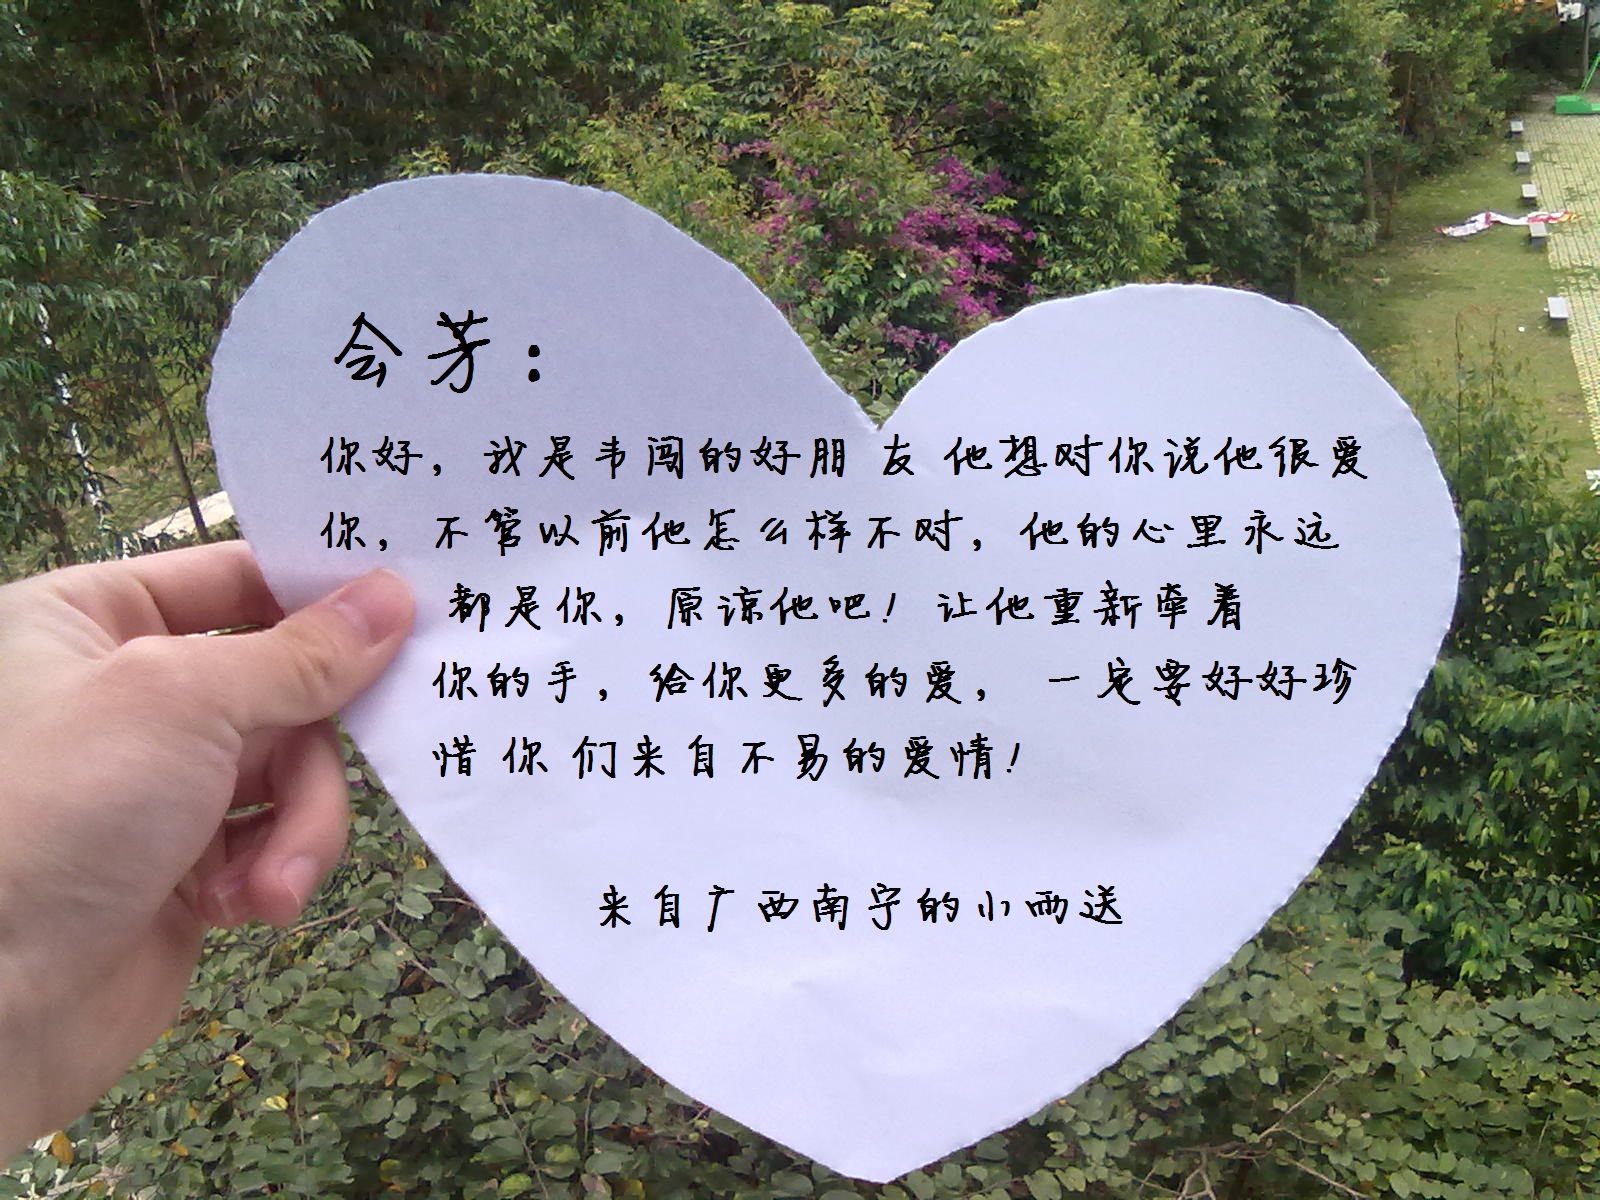 会芳：
你好，我是韦闯的好朋 友 他想对你说他很爱
你，不管以前他怎么样不对，他的心里永远
都是你，原谅他吧！让他重新牵着
你的手，给你更多的爱， 一定要好好珍
惜 你 们来自不易的爱情！
来自广西南宁的小雨送